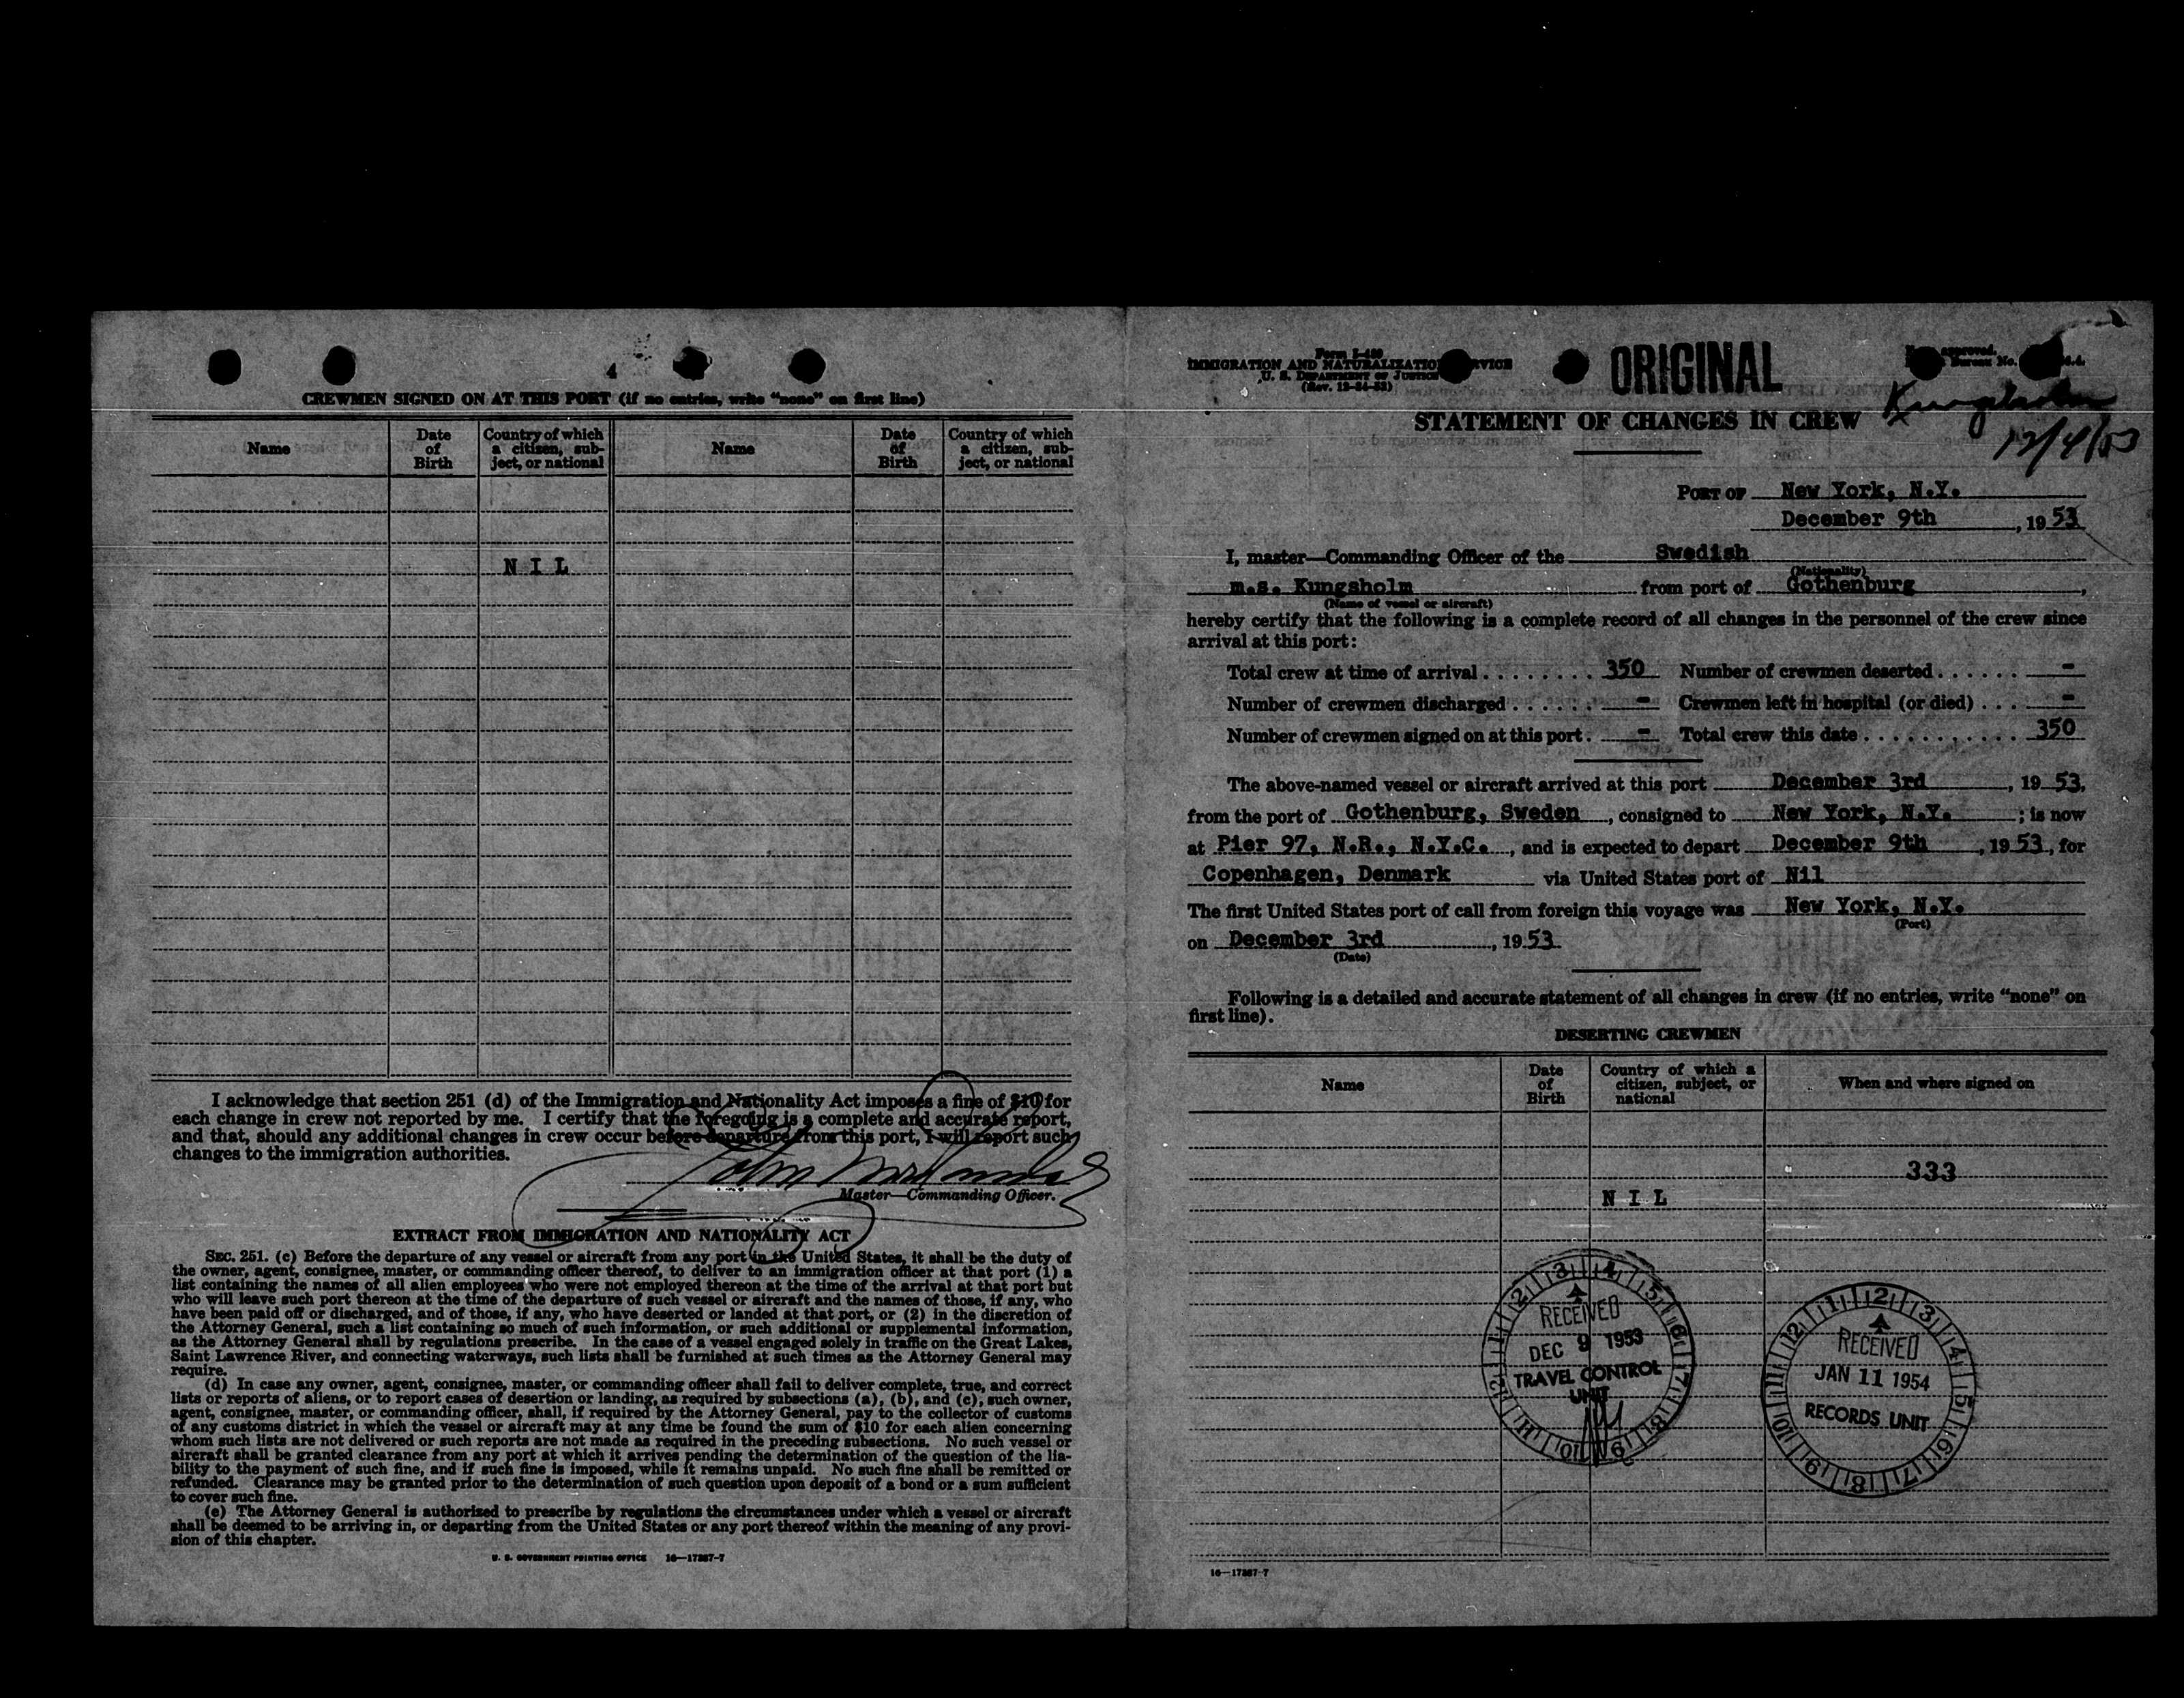 4
CREWMEN SIGNED ON AT THIS PORT (if no entries, write “none” on first line)
Name
Date of Birth
Country of which a citizen, subject, or national
Name
Date of Birth
Country of which a citizen, subject, or national
N I L
I acknowledge that section 251 (d) of the Immigration and Nationality Act imposes a fine of $10 for
each change in crew not reported by me. I certify that the foregoing is a complete and accurate report,
and that, should any additional changes in crew occur before departure from this port, I will report such
changes to the immigration authorities.
Master—Commanding Officer.
EXTRACT FROM IMMIGRATION AND NATIONALITY ACT
SEC. 251. (c) Before the departure of any vessel or aircraft from any port in the United States, it shall be the duty of
the owner, agent, consignee, master, or commanding officer thereof, to deliver to an immigration officer at that port (1) a
list containing the names of all alien employees who were not employed thereon at the time of the arrival at that port but
who will leave such port thereon at the time of the departure of such vessel or aircraft and the names of those, if any, who
have been paid off or discharged, and of those, if any, who have deserted or landed at that port, or (2) in the discretion of
the Attorney General, such a list containing so much of such information, or such additional or supplemental information,
as the Attorney General shall by regulations prescribe. In the case of a vessel engaged solely in traffic on the Great Lakes,
Saint Lawrence River, and connecting waterways, such lists shall be furnished at such times as the Attorney General may
require.
(d) In case any owner, agent, consignee, master, or commanding officer shall fail to deliver complete, true, and correct
lists or reports of aliens, or to report cases of desertion or landing, as required by subsections (a), (b), and (c), such owner,
agent, consignee, master, or commanding officer, shall, if required by the Attorney General, pay to the collector of customs
of any customs district in which the vessel or aircraft may at any time be found the sum of $10 for each alien concerning
whom such lists are not delivered or such reports are not made as required in the preceding subsections. No such vessel or
aircraft shall be granted clearance from any port at which it arrives pending the determination of the question of the lia-
bility to the payment of such fine, and if such fine is imposed, while it remains unpaid. No such fine shall be remitted or
refunded. Clearance may be granted prior to the determination of such question upon deposit of a bond or a sum sufficient
to cover such fine.
(e) The Attorney General is authorized to prescribe by regulations the circumstances under which a vessel or aircraft
shall be deemed to be arriving in, or departing from the United States or any port thereof within the meaning of any provi-
sion of this chapter.
U. S. GOVERNMENT PRINTING OFFICE 16—17387-7
Form
IMMIGRATION AND NATURALIZATION SERVICE
U. S. DEPARTMENT OF JUSTICE
(Rev. 12-24-52)
ORIGINAL
approved.
No.
Kungsholm
12/4/53
STATEMENT OF CHANGES IN CREW
PORT OF New York, N.Y.
December 9th, 1953
I, master—Commanding Officer of the Swedish
(Nationality)
m.s. Kungsholm from port of Gothenburg,
(Name of vessel or aircraft)
hereby certify that the following is a complete record of all changes in the personnel of the crew since
arrival at this port:
Total crew at time of arrival . . . . . . . . 350 Number of crewmen deserted . . . . . . -
Number of crewmen discharged . . . . . . - Crewmen left in hospital (or died) . . . -
Number of crewmen signed on at this port . - Total crew this date . . . . . . . . . . . 350
The above-named vessel or aircraft arrived at this port December 3rd, 1953,
from the port of Gothenburg, Sweden, consigned to New York, N.Y. ; is now
at Pier 97, N.R., N.Y.C., and is expected to depart December 9th, 1953, for
Copenhagen, Denmark via United States port of Nil
The first United States port of call from foreign this voyage was New York, N.Y.
(Port)
on December 3rd, 1953
(Date)
Following is a detailed and accurate statement of all changes in crew (if no entries, write “none” on
first line).
DESERTING CREWMEN
Name
Date of Birth
Country of which a citizen, subject, or national
When and where signed on
333
N I L
RECEIVED
DEC 9 1953
TRAVEL CONTROL
UNIT
1 2 3 4 5 6 7 8 9 10 11 12
RECEIVED
JAN 11 1954
RECORDS UNIT
1 2 3 4 5 6 7 8 9 10 11 12
16—17387-7